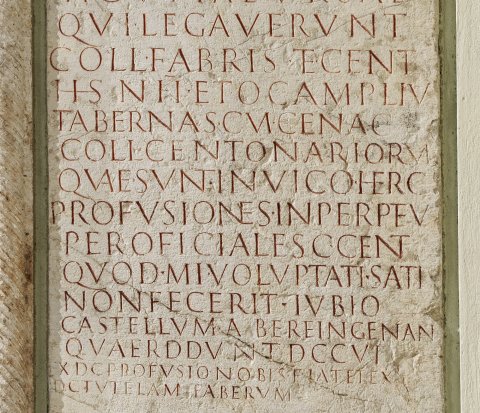 QVI LEGAVERVNT
COLL FABR IS ET CENT
HS N II ET O C AMPLIV
TABERNAS CVM CENAC
COLL CENTONARIORVM
QVAE SVNT IN VICO HERC
PROFVSIONES IN PERPETV
PER OFICIALES CCENT
QVOD MI VOLVPTATI SATI
NON FECERIT IVBIO
CASTELLVM ABEREINGENAN
QVAERDDVNT DCCVI
X DC PROFVSIO NOBIS FIAT EL EX
DC TVTELAM FABERVM